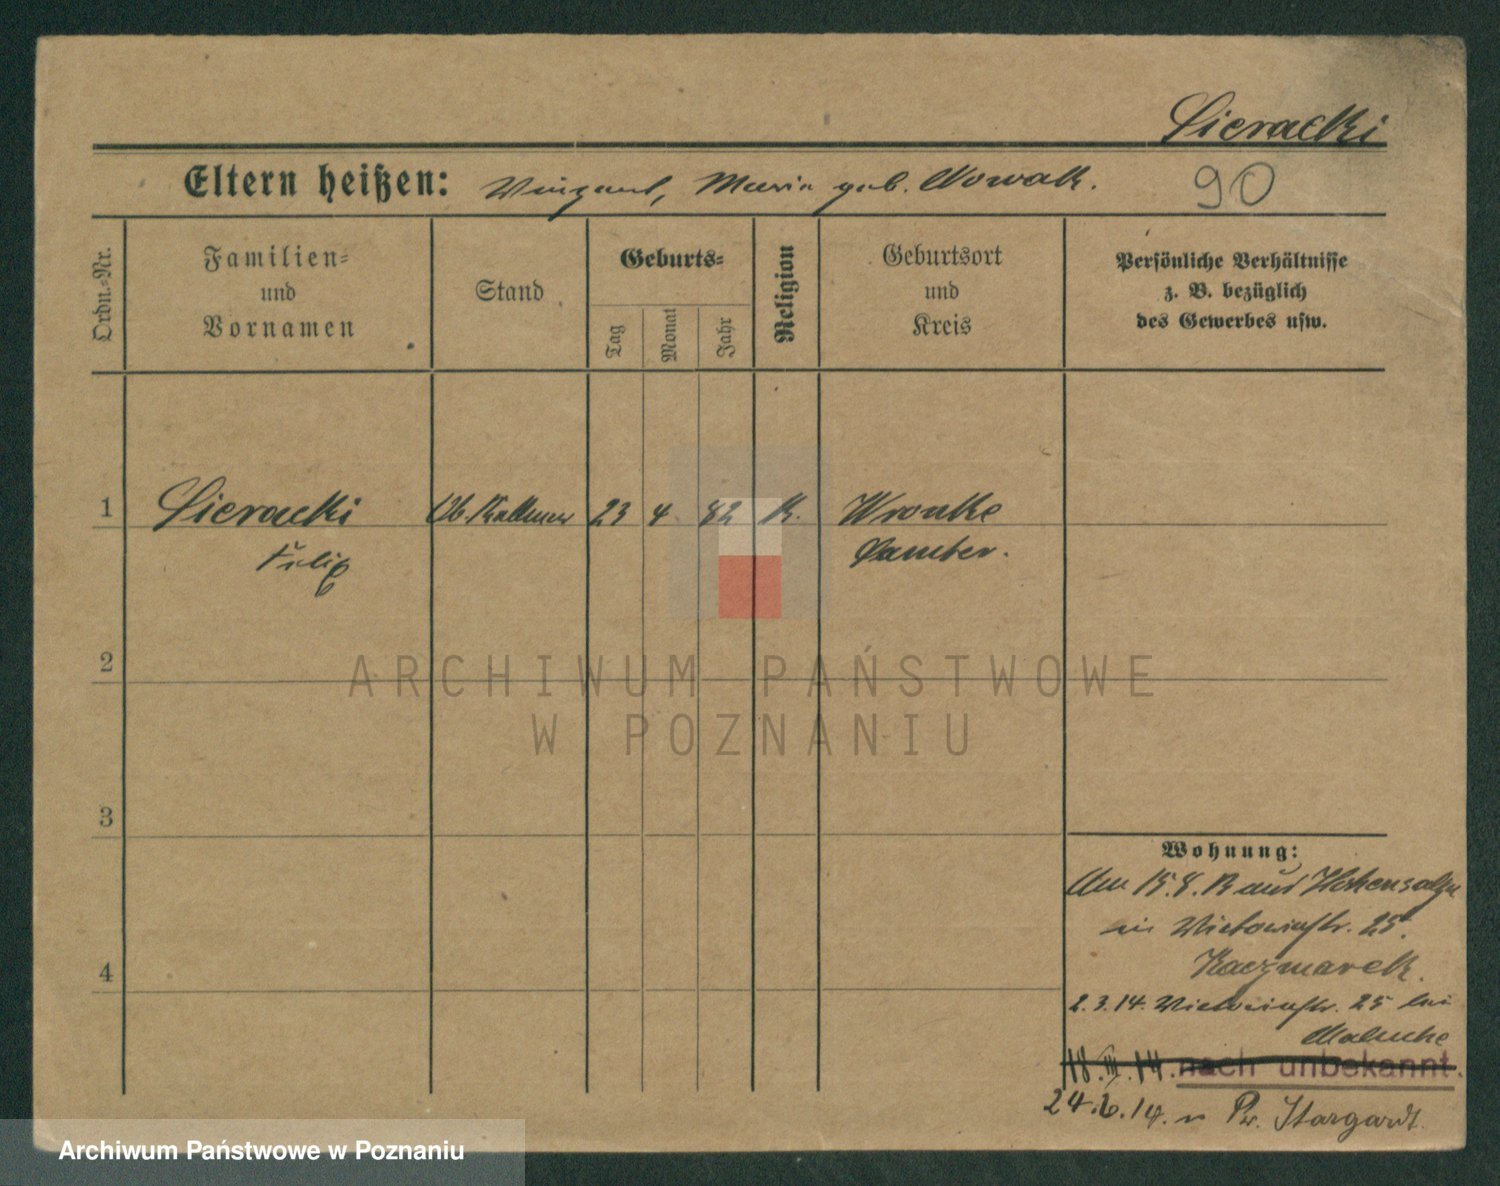 Sieracki
Eltern heißen: Vinzent, Maria geb. Nowak.
90
Ordn.-Nr.
Familien-
und
Vornamen
Stand
Geburts-
Tag
Monat
Jahr
Religion
Geburtsort
und
Kreis
Persönliche Verhältnisse
z. B. bezüglich
des Gewerbes usw.
1 Sieracki Ob. Kellner 23 4 82 K. Wronke
Samter.
2
3
4
Wohnung:
Am 15.8.13 aus Hohensalza
in Victoriastr. 25.
Kaczmarek.
2.3.14. Victoriastr. 25 bei
18.III.14. nach unbekannt.
24.6.14. n Pr. Stargardt.
ARCHIWUM PAŃSTWOWE
W POZNANIU
Archiwum Państwowe w Poznaniu